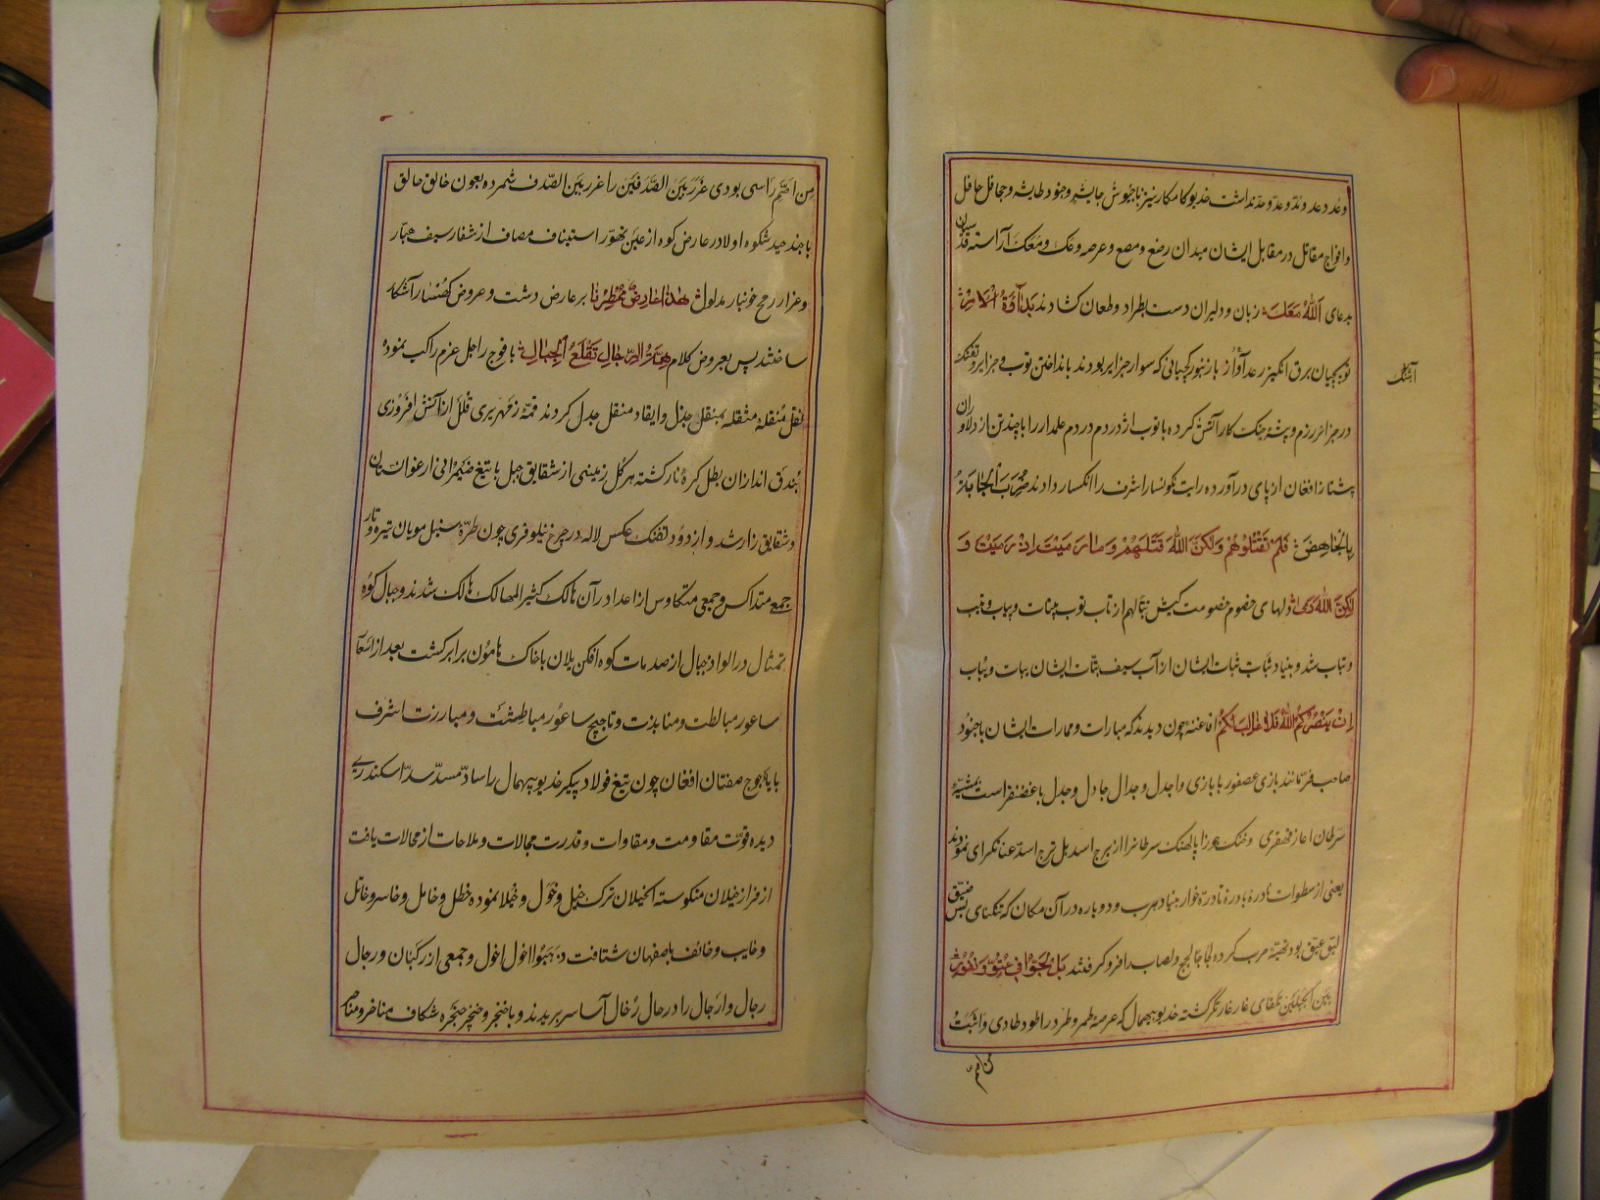 وعدد عدد وندّ وعدّ وحدّ نداشت خدیو کامکار نیز با جیوش جایشه و جنود طایشه و جحافل حافل
و افواج مقاتل در مقابل ایشان میدان رضع و مصع و عرصه وعک و معک آراسته قدسیان
بدعای اَللهُ مَعَکَ زبان و دلیران دست بطراد و طعان کشادند
توپچیان برق انگیز رعد آواز با زنبورکچیانی که سوار جزایر بودند بانداختن توپ و جزایر و تفنک
آهنک
در جزائر رزم و پشهٔ جنک کار آتش کرده با توپ اژدر دم در دم علمدار را با چندتن از دلاوران
پشتاز افغان از پای درآورده رایت نکونسار اشرف را انکسار دادند
فَلَمْ تَقْتُلُوهُمْ وَلَکِنَّ اللهَ قَتَلَهُمْ وَمَا رَمَیْتَ اِذْ رَمَیْتَ وَ
لَکِنَّ اللهَ رَمَی دلهای خصوم خصومت کیش بتالهم از تاب توپ
و تباب شد و بنیاد ثبات ثبات ایشان از آب سیف بتّات ایشان یبات و یباب
اِنْ یَنْصُرْکُمُ اللهُ فَلَا غَالِبَ لَکُمْ افاغنه چون دیدند که مبارات و ممارات ایشان با جنود
صاحب فر مانند بازی عصفور با بازی و اجدل و جدال جادل و جدل با غضنفر است
سرطان آغاز قهقری از برج اسد
یعنی از سطوات نادره بادرهٔ نادرهٔ خوار بنیاد هرب و دوباره در آن مکان که تنکنای
بود تهیّهٔ حرب کرده لجاجا لجج و لصاب را فرو کرفتند بَلْ لَجُّوا فِی عُتُوٍّ وَنُفُورٍ
بَیْنَ الْجَبَلَیْنِ کشته خدیو بیهمال که عرصهٔ طمر و طرد را طود طادی و اثبت
من اصمّ
مِن اصَمِّ رَاسی بودی غَرَرَ بَیْنَ الصَّدَفَیْن را غرر بین الصّدف شمرده بعون خالق حالق
با جند حید شکوه اولا در عارض کوه از عین تهوّر استیناف مصاف از شفار سیف هبّار
و عزار رمح خونبار مدلول هٰذَا عَارِضٌ مُمْطِرُنَا بر عارض دشت و عروض کهسار آشکار
ساختند پس بعروض کلام هِمَّةُ الرِّجَالِ تَقْلَعُ الْجِبَالَ با فوج راجل عزم راکب نموده
نقل مُنقله مثقله بمنقل جذل و ایقاد منقل جدل کردند قمّهٔ زمهریری قلل از آتش افروزی
بُندق اندازان بطل کرهٔ نار کشته هر کل زمینی از شقایق جبل با تیغ ضیمرانی ارغوانستان
و شقایق زار شد و از دود تفنک عکس لاله در چرخ نیلوفری چون طرّهٔ سنبل مویان تیره و تار
جمع متداکس و جمعی متکاوس از اعدا در آن هالک کثیر المهالک هالک شدند و جبال کوه
تمثال در الواذ جبال از صدمات کوه افکن یلان با خاک هامون برابر کشت بعد از
ساعور مبالطت و منابذت و تاجیج ساعور مباطشت و مبارزت اشرف
با یاجوج صفتان افغان چون تیغ فولاد پیکر خدیو بیهمال را سادّ مسدّ سدّ اسکندری
دیده قوّت مقاومت و مقاوات و قدرت مجالات و ملاحات از محالات یافت
از فراز خیلان منکوسة الخیلان ترک خیل و خَوَل و خُیَلا نموده خطل و خامل و خاسر و خاتل
و خایب و خائف باصفهان شتافت اخول اخول و جمعی از رکبان و رجال
رجال و ارجال را در حال رُخال آسا سر بریدند و با خنجر و خنجر حنجره شکاف مناخر و مناحر